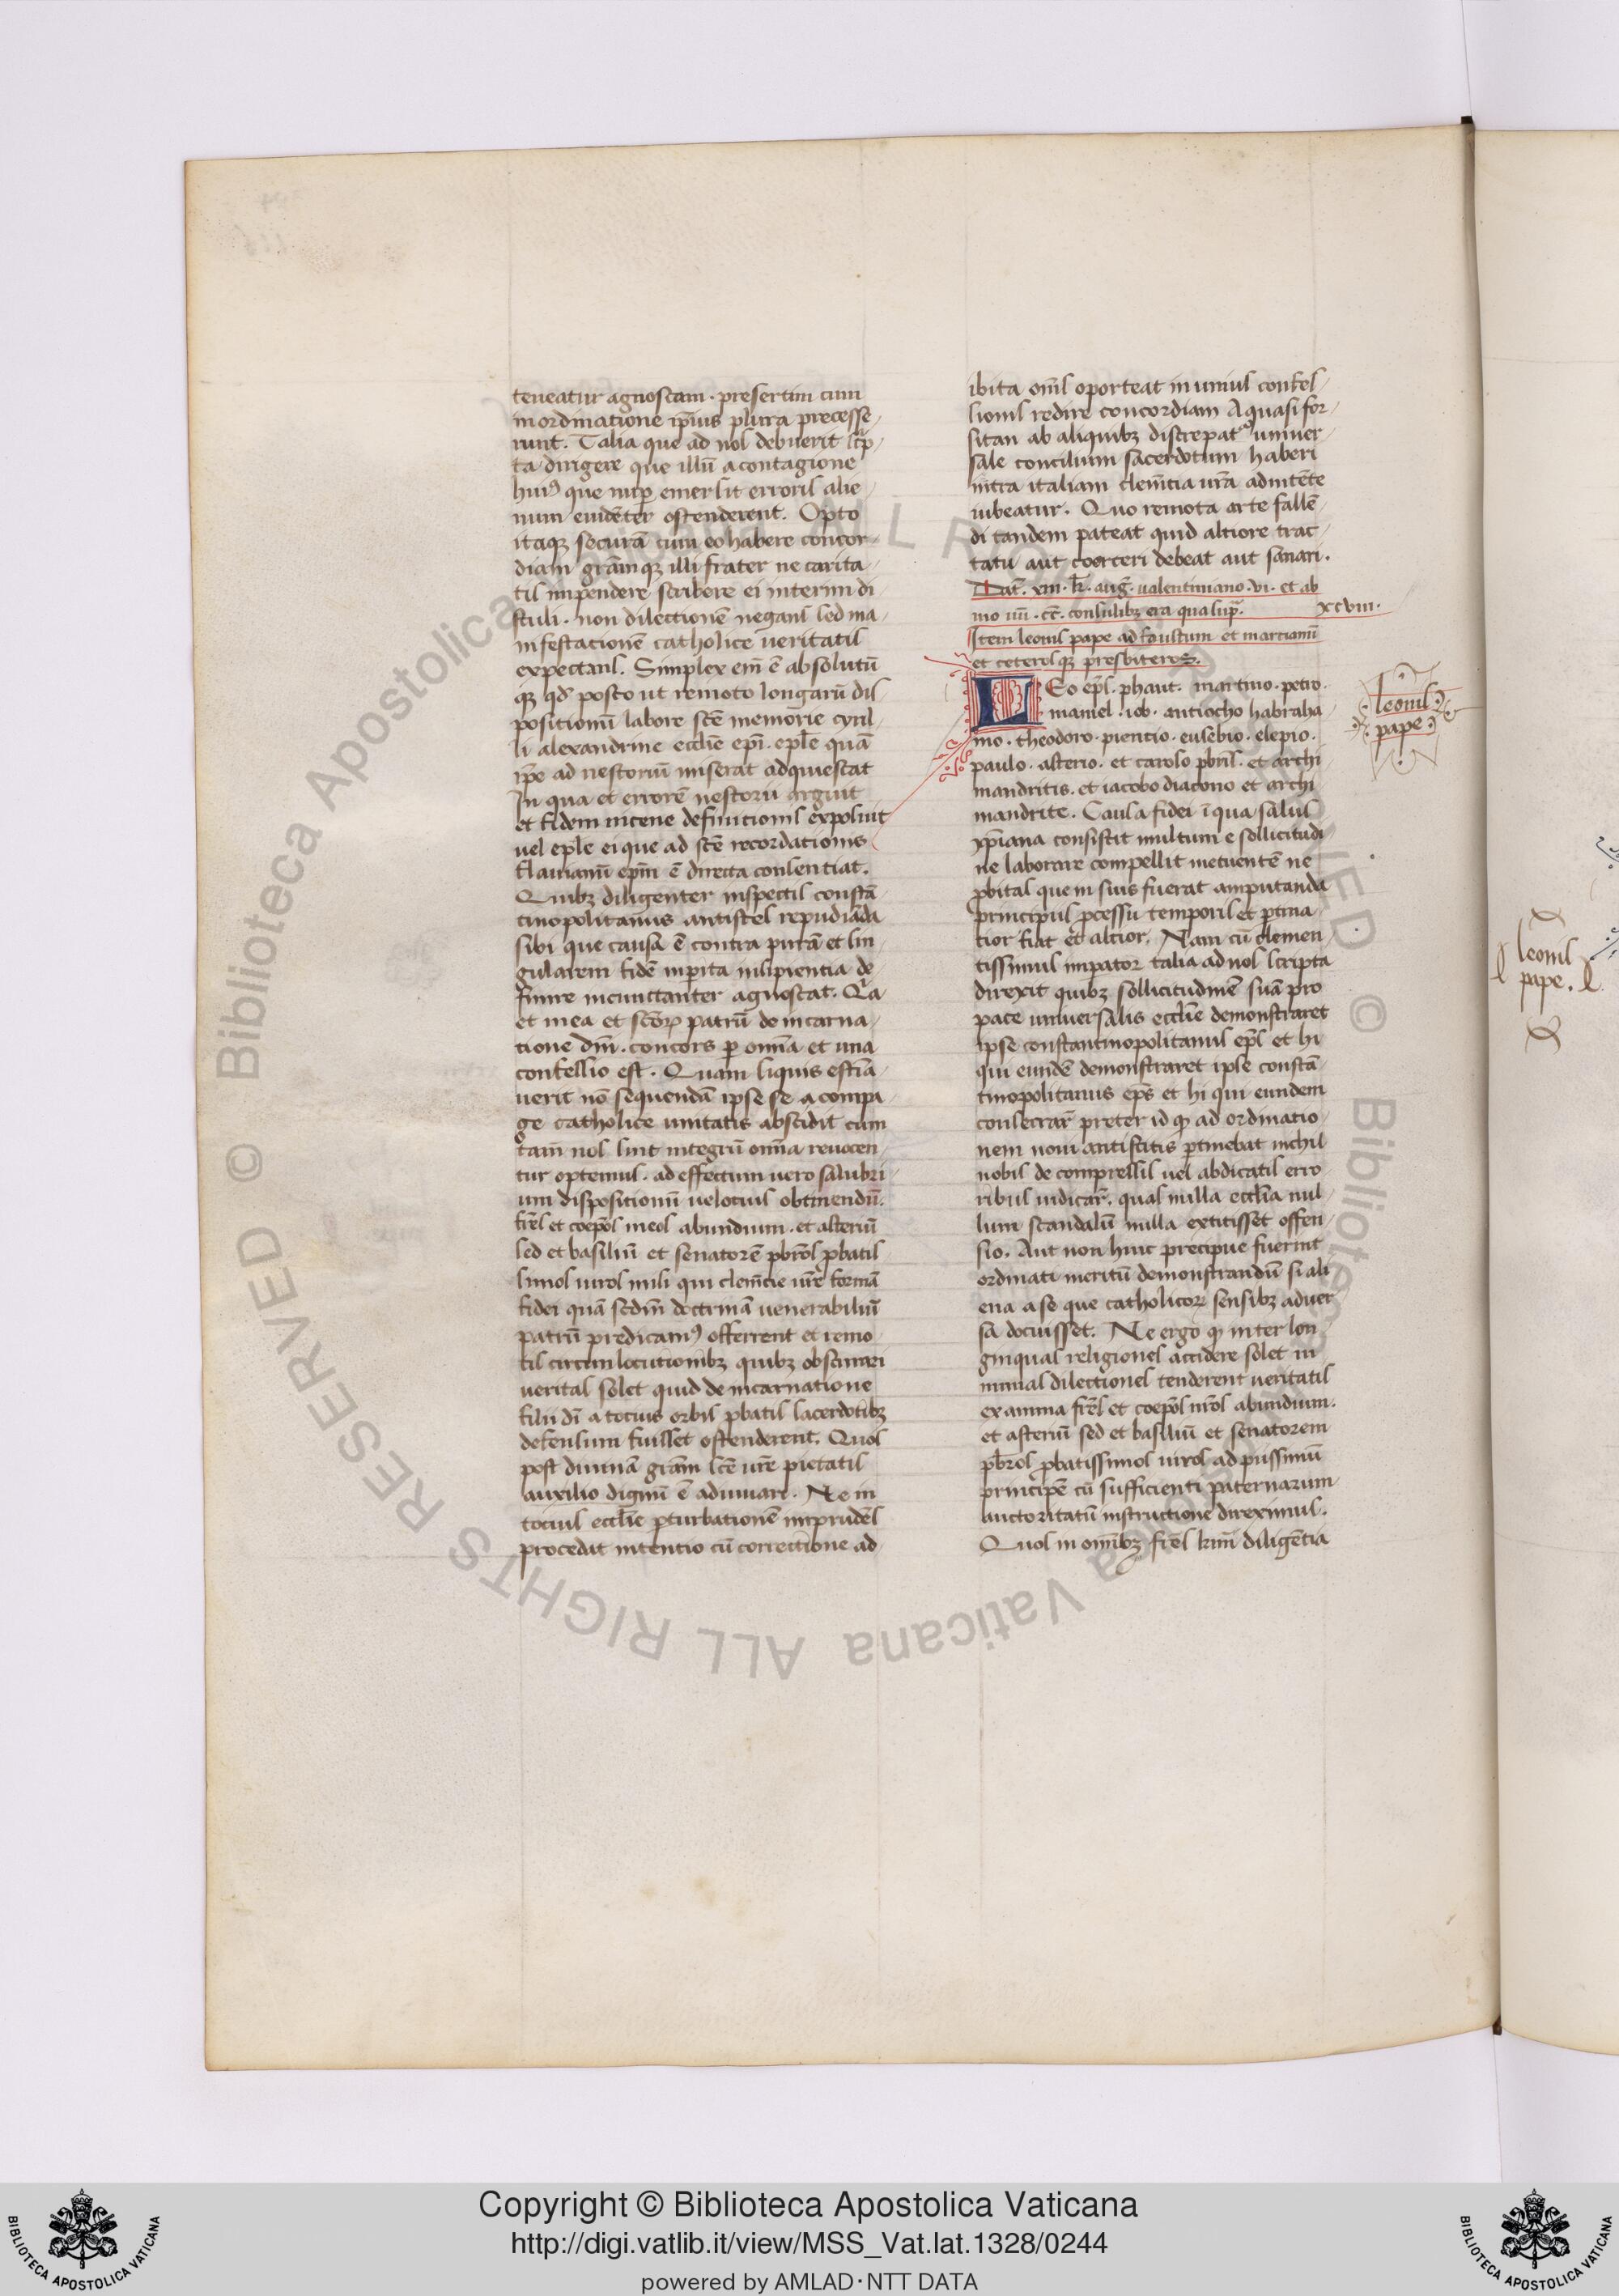 teneatur agnoscam · presertim cum
in ordinatione ip̄ius plura precesse
runt. Talia que ad nos debuerit sc̄p
ta dirigere que illū a contagione
huiꝰ que nup̲ emersit erroris alie
num euidēter ostenderent. Opto
itaqꝫ securā cum eo habere concor
diam grāmqꝫ illi frater ne carita
tis impendere scribere ei interim di
stuli · non dilectionē negans sed ma
nifestacionē catholice ueritatis
expectans. Simplex em̄ ē absolutū
qꝫ qd̄ posco ut remoto longarū dis
positionū labore sc̄e memorie cyril
li alexandrine eccl̄ie epī · epl̄e quā
ip̄e ad nestoriū miserat adquiescat
In qua et errorē nestorii arguit
et fidem nicene definicionis exposuit
uel epl̄e ei que ad sc̄e recordationis
flauianū epm̄ ē directa consentiat.
Quibꝫ diligenter inspectis constā
tinopolitanus antistes repudiāda
sibi que causa ē contra purā et sin
gularem fidē inperita insipientia de
finire incunctanter agnoscat. Qꝛa
et mea et scōꝝ patrū de incarna
tione dn̄i · concors p̲ omīa et una
confessio est. Quam siquis estīa
uerit nō sequendā ipse se a compa
ge catholice unitatis abscidit cum
tam̄ nos sint integrū omīa reuocen
tur optemus · ad effectum uero salubri
um dispositionū uelocius obtinendū.
fr̄es et coep̄os meos abundium · et asteriū
sed et basiliū et senatorē pbrōs p̲batis
simos uiros misi qui clem̄cie ur̄e formā
fidei quā scdm̄ doctrinā uenerabiliū
patrū predicamꝰ offerrent et remo
tis circumlocutionibꝫ quibꝫ obscurari
ueritas solet quid de incarnatione
filii dī a tocius orbis p̲batis sacerdotibꝫ
defensum fuisset ostenderent. Quos
post diuinā grām sc̄e ur̄e pietatis
auxilio dignū ē adiuuari. Ne in
tocius eccl̄ie p̲turbationē imprudēs
procedat intentio cū correctione ad
ibita om̄s oporteat in unius confes
sionis redire concordiam A quasi for
sitan ab aliquibꝫ discrepat̄ uniuer
sale concilium sacerdotum haberi
intra italiam clem̄tia ur̄a adnitēte
iubeatur. Quo remota arte fallē
di tandem pateat quid altiore trac
tatu aut coerceri debeat aut sanari.
Dat̄. xvii · kl̄. auḡ. ualentiniano · vi · et ab
ino uū · cc̄. consulibꝫ era qua sup̄ª. xcviii.
Item leonis pape ad faustum et marcianū
et ceterosqꝫ presbiteros.
LEo ep̄s. phaut. martino · petro
manel · iob · antiocho habraha
mo · theodoro · pientio · eusebio · elepio ·
paulo · asterio · et caroso pbrīs. et archi
mandritis. et iacobo diacono et archi
mandrite. Causa fidei ī qua salus
xp̄iana consistit multum e sollicitudi
ne laborare compellit metuentē ne
p̲bitas quem suis fuerat amputanda
principiis p̲cessu temporis et p̲tina
cior fiat et altior. Nam cū clemen
tissimus imp̲ator talia ad nos scripta
direxit quibꝫ sollicitudinē suā pro
pace uniuersalis eccl̄ie demonstraret
ipse constantinopolitanus ep̄s et hi
qui eundē demonstraret ipse constā
tinopolitanus ep̄s et hi qui eundem
consecrar̄ preter id qꝫ ad ordinatio
nem noui antistitis p̲tinebat nichil
nobis de compressis uel abdicatis erro
ribus indicar̄. quas nulla eccl̄ia nul
lum scandalū nulla extitisset offen
sio. Aut non huic precipue fuerint
ordinati meritū demonstrandū si ali
ena a se que catholicoꝝ sensibꝫ aduer
sa docuisset. Ne ergo qꝫ inter lon
ginquas religiones accidere solet in
nimias dilectiones tenderent ueritatis
examina fr̄es et coep̄os nr̄os abundium.
et asteriū sed et basiliū et senatorem
pbrōs p̲batissimos uiros ad piissimū
principē cū sufficienti paternarum
auctoritatū instructione direximus.
Quos in om̄ibꝫ fr̄es kmī diligētia
leonis
pape
leonis
pape.
Copyright © Biblioteca Apostolica Vaticana
http://digi.vatlib.it/view/MSS_Vat.lat.1328/0244
powered by AMLAD·NTT DATA
BIBLIOTECA APOSTOLICA VATICANA
BIBLIOTECA APOSTOLICA VATICANA
© Biblioteca Apostolica Vaticana ALL RIGHTS RESERVED